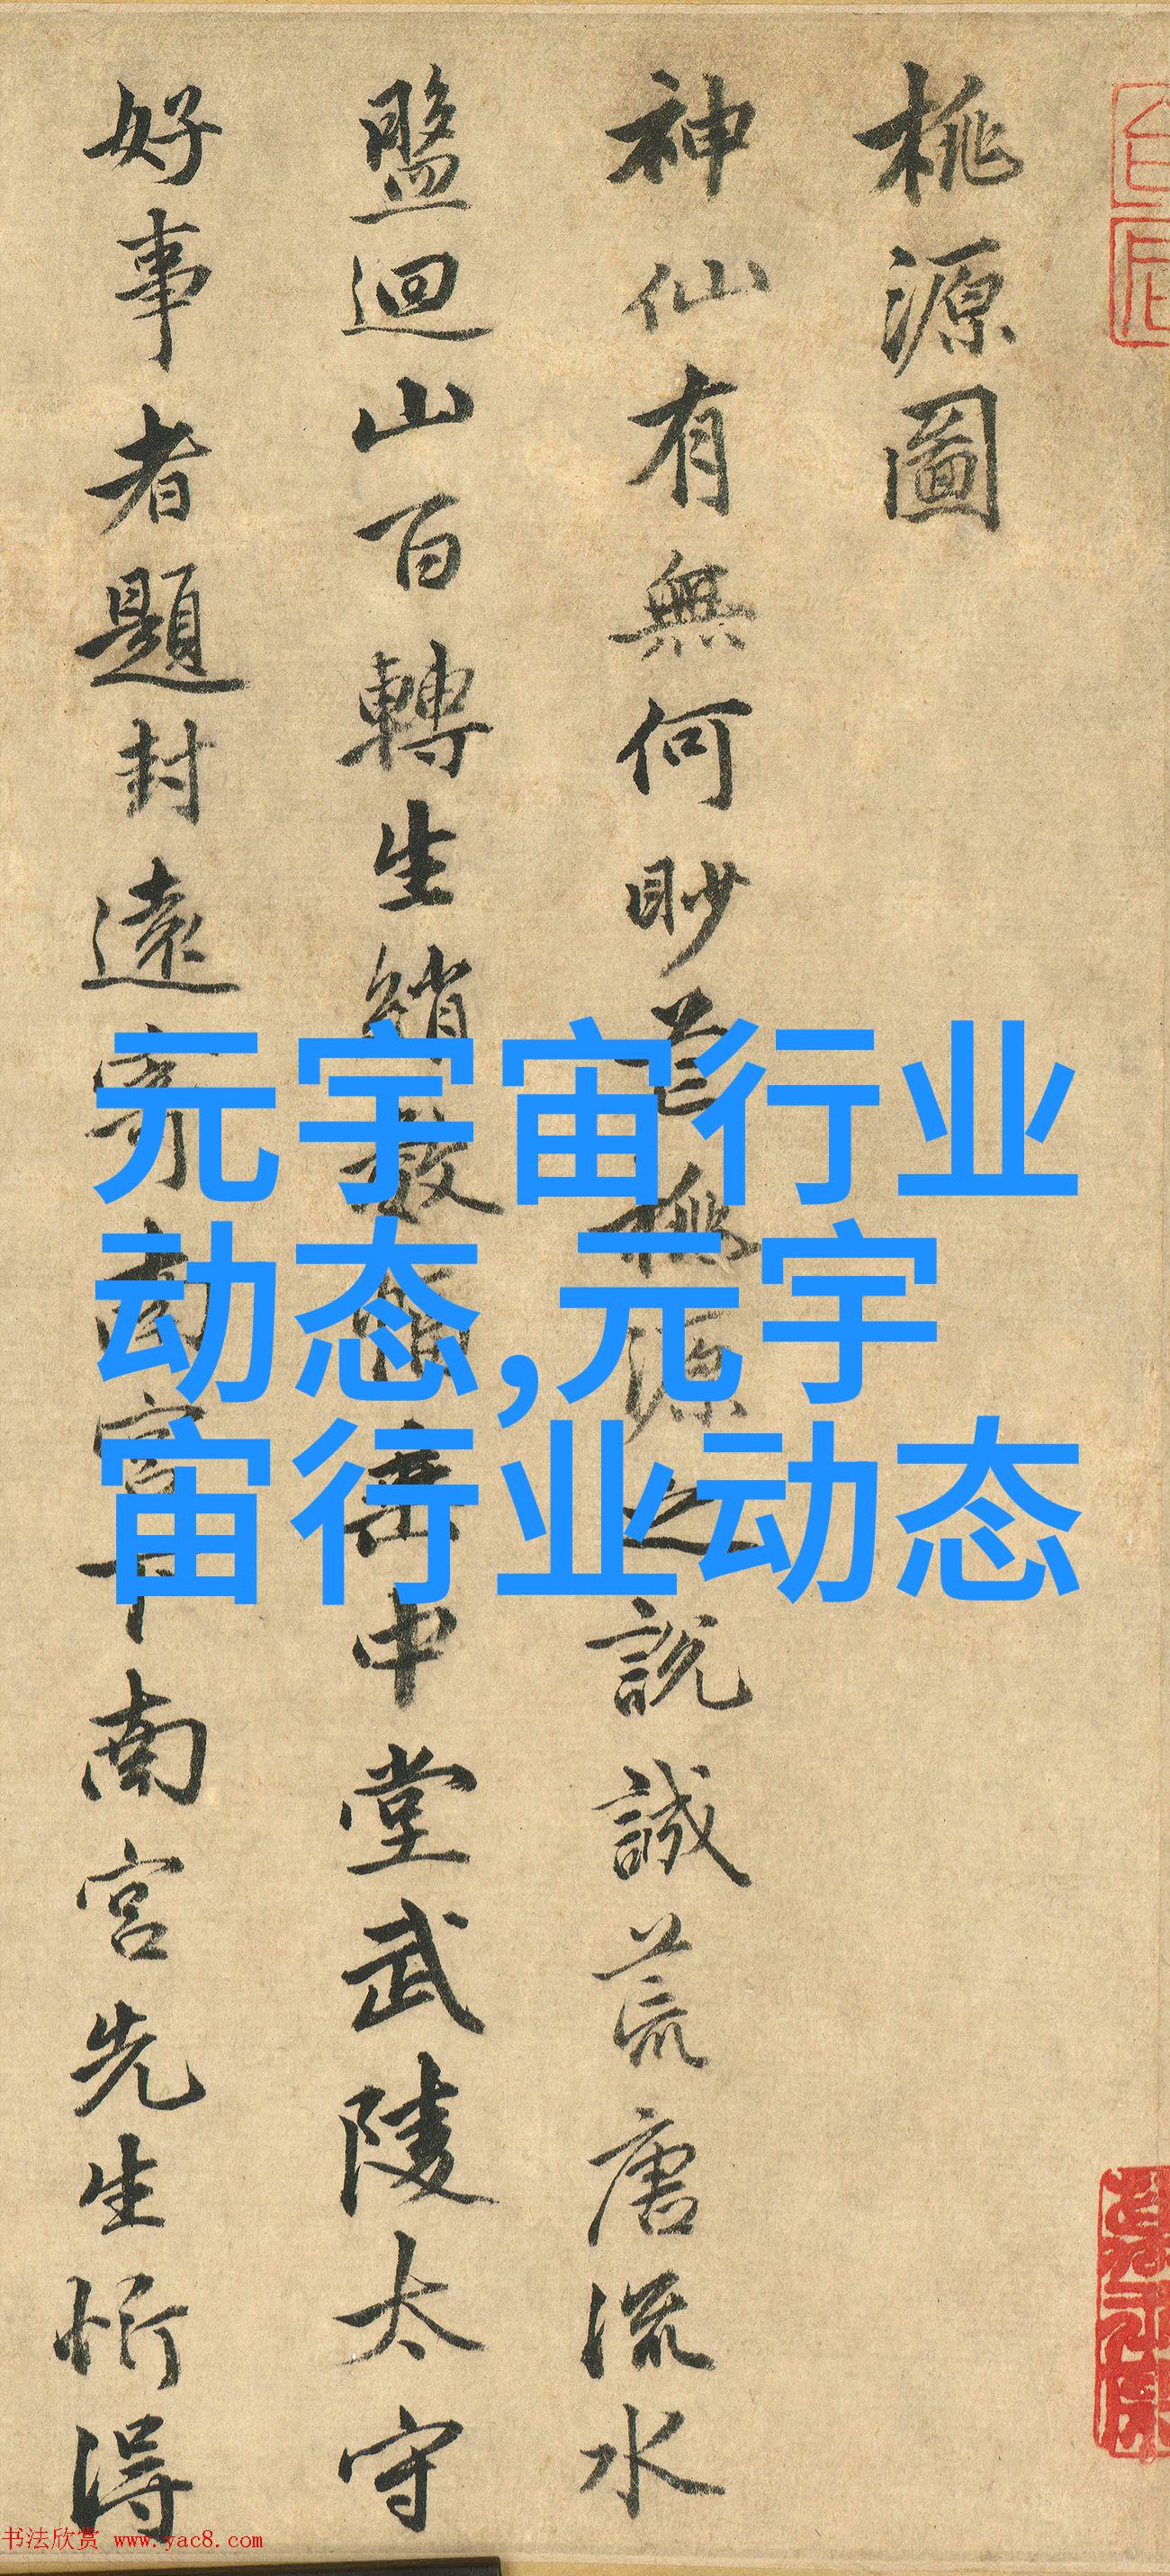 桃源圖
神仙有無何眇芒桃源之說誠荒唐流水
盤迴山百轉生綃數幅垂中堂武陵太守
好事者題封遠寄南宮下南宮先生忻得
元宇宙行业
动态,元宇
宙行业动态
书法欣赏 www.yac8.com